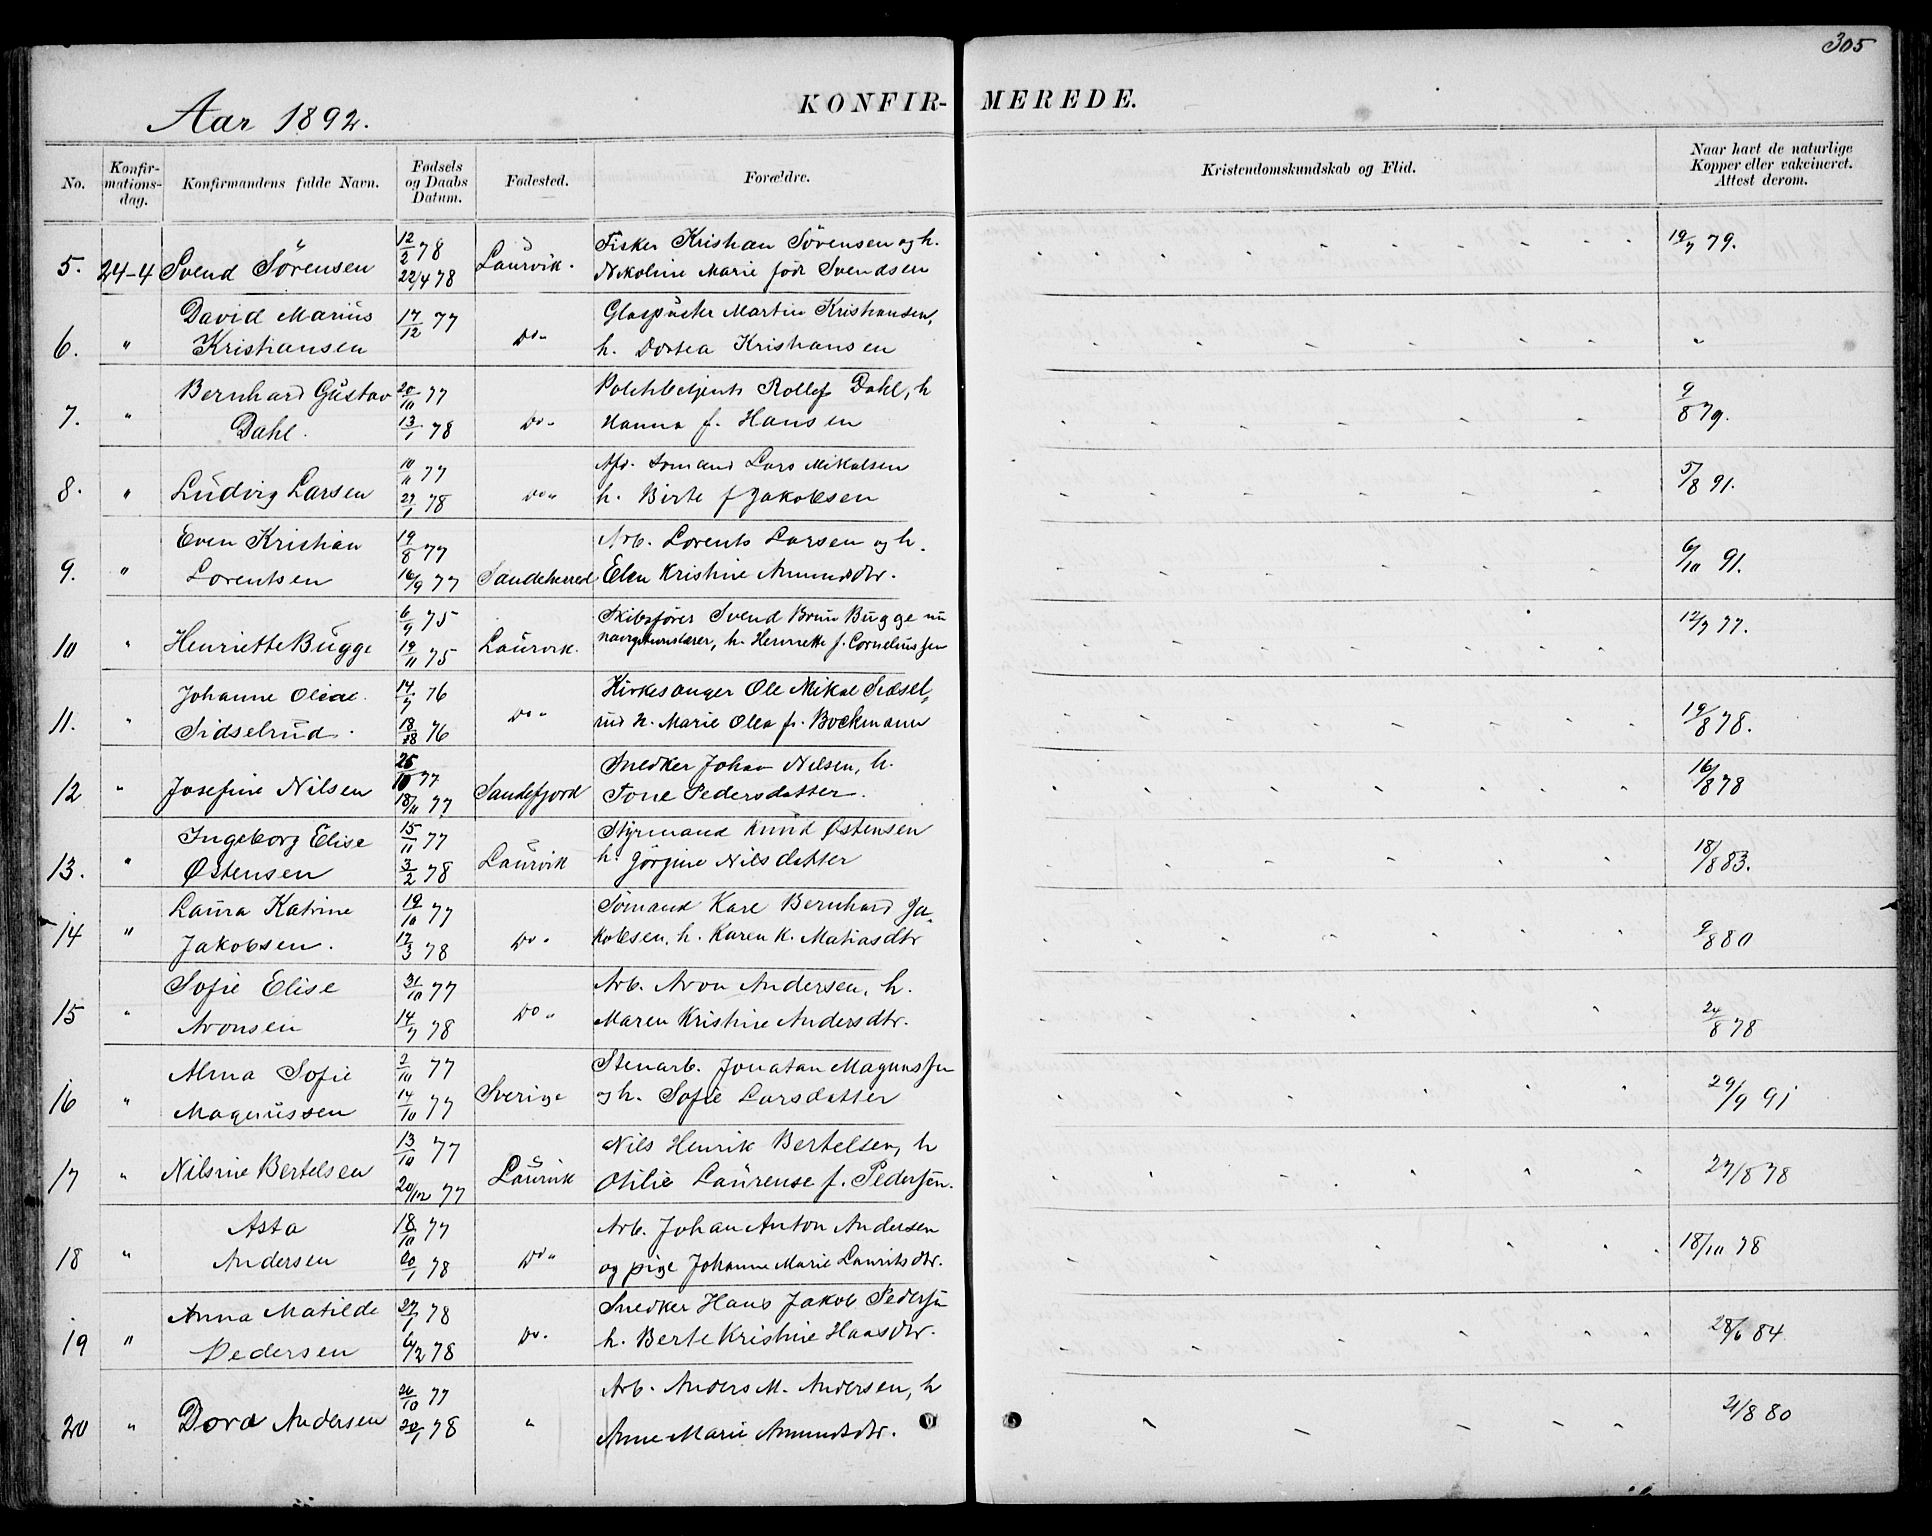 305
Aar 1892.
KONFIR- MEREDE.
No.
Konfir-
mations-
dag.
Konfirmandens fulde Navn.
Fødsels
og Daabs
Datum.
Fødested.
Forældre.
Kristendomskundskab og Flid.
Naar havt de naturlige
Kopper eller vakcineret.
Attest derom.
5. 24-4 Svend Sörensen 12/2 78 22/4 78 Laurvik. Fisker Kristian Sörensen og h.
Nikoline Marie föd Svendsen 19/7 79.
6. " David Marius
Kristiansen 17/12 77 Do " Glaspuster Martin Kristiansen,
h. Dortea Kristiansen "
7. " Bernhard Gustav
Dahl. 20/10 77 13/1 78 Do " Politibetjent Rollef Dahl, h
Hanna f. Hansen 9/8 79.
8. " Ludvig Larsen 10/11 77 27/1 78 Do " Afd. Sömand Lars Mikalsen
h. Birte f Jakobsen 5/8 91.
9. " Even Kristian
Lorentsen 19/8 77 16/9 77 Sandeherred Arb. Lorents Larsen og h.
Elen Kristine Amundsdtr. 6/10 91.
10 " Henriette Bugge 6/9 75 19/11 75 Laurvik. Skibsfører Svend Brun Bugge nu
navigationslærer, h. Henriette f. Corneliussen 12/7 77.
11. " Johanne Oleae
Sidselrud. 14/7 76 18/8 76 Do " Kirkesanger Ole Mikal Sidsel,
rud h. Marie Olea f. Bockmann 19/8 78.
12 " Josefine Nilsen 25/10 77 18/11 77 Sandefjord Snedker Johan Nilsen, h.
Tone Pedersdatter. 16/8 78
13. " Ingeborg Elise
Østensen 15/11 77 3/2 78 Laurvik Styrmand Knud Østensen
h. Jörgine Nilsdatter 18/8 83.
14 " Laura Katrine
Jakobsen. 19/10 77 17/3 78 Do " Sömand Karl Bernhard Ja-
kobsen, h. Karen K. Matiasdtr 9/8 80
15 " Sofie Elise
Aronsen 31/10 77 14/7 78 Do " Arb. Aron Andersen, h.
Maren Kristine Andersdtr. 24/8 78
16 " Alma Sofie
Magnussen 2/10 77 14/10 77 Sverige Stenarb. Jonatan Magnussen
og h. Sofie Larsdatter 29/9 91
17 " Nilsine Bertelsen 13/10 77 20/12 77 Laurvik Nils Henrik Bertelsen, h
Otilie Laurense f. Pedersen. 27/8 78
18 " Asta
Andersen 18/10 77 20/1 78 Do " Arb. Johan Anton Andersen
og pige Johanne Marie Lauritsdtr. 18/10 78
19 " Anna Matilde
Pedersen 27/1 78 6/2 78 Do. Snedker Hans Jakob Pedersen
h. Berte Kristine Hansdtr. 28/6 84.
20 " Dora Andersen 26/10 77 20/1 78 " Arb. Anders M. Andersen, h
Anne Marie Amundsdtr. 21/8 80